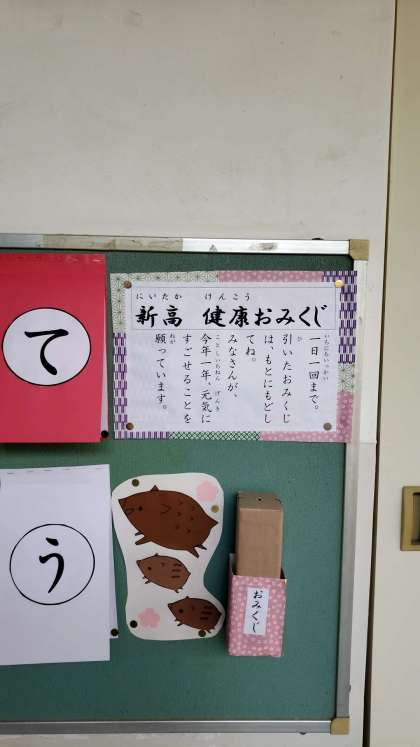 て
う
にいたか けんこう
新高 健康おみくじ
いちにちいっかい
一日一回まで。
ひ
引いたおみくじ
は、もとにもどし
てね。
みなさんが、
ことしいちねん げんき
今年一年、元気に
すごせることを
ねが
願っています。
おみくじ